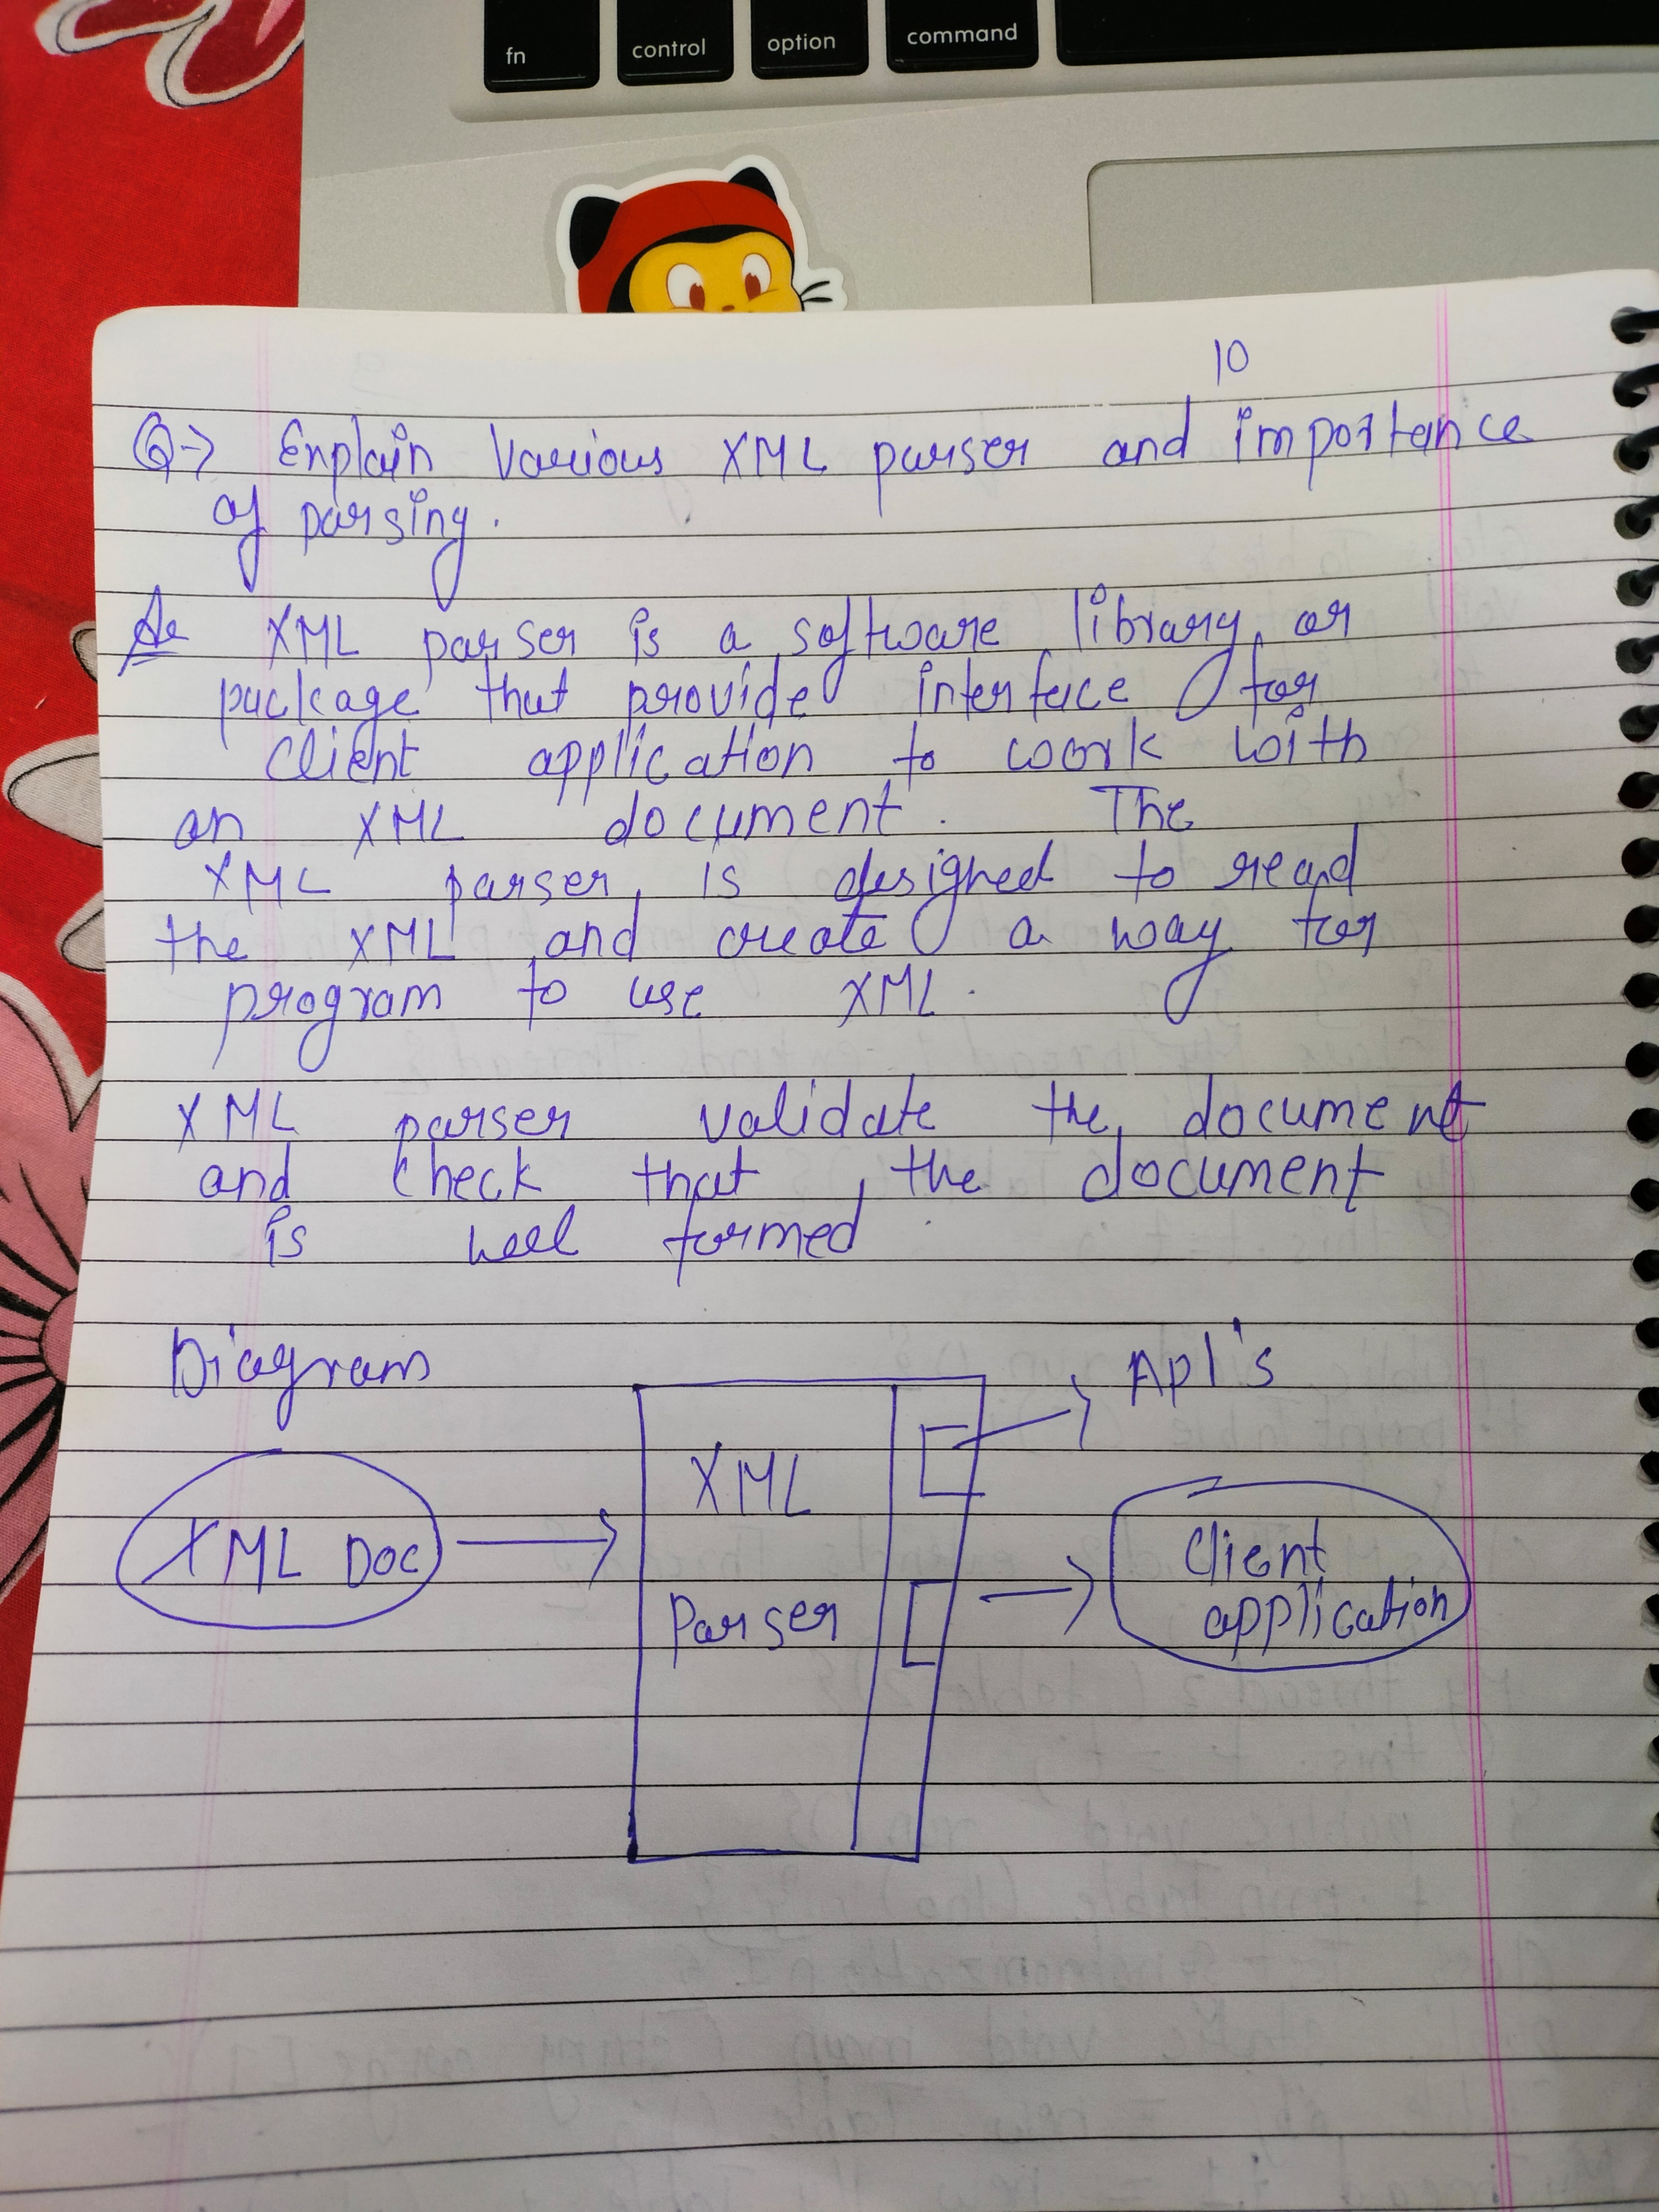 fn control option command
10
Q→ Explain Various XML parser and importance
of parsing.
As XML parser is a software library or
package that provide interface for
client application to work with
an XML document. The
XML parser is designed to read
the XML and create a way for
program to use XML.
XML parser validate the document
and check that the document
is well formed
Diagram
API's
XML
Client
XML Doc
application
Parser